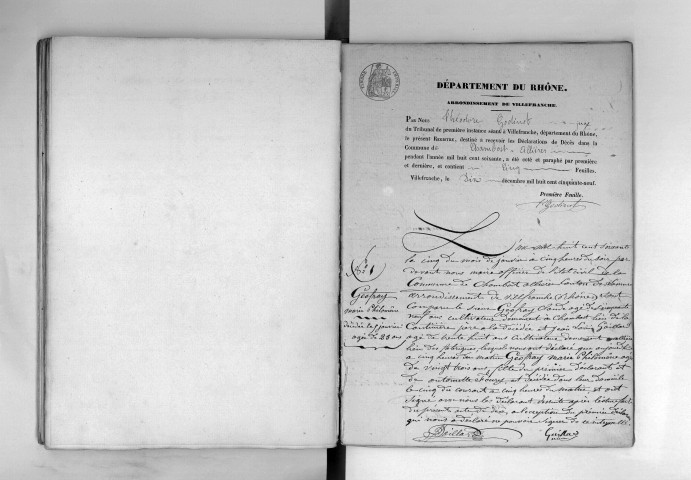 DÉPARTEMENT DU RHÔNE.
ARRONDISSEMENT DE VILLEFRANCHE.
Par Nous Théodore Godinot juge
du Tribunal de première instance séant à Villefranche, département du Rhône,
le présent Registre, destiné à recevoir les Déclarations de Décès dans la
Commune de Chambost-Allières
pendant l'année mil huit cent soixante, a été coté et paraphé par première
et dernière, et contient cinq Feuilles.
Villefranche, le dix décembre mil huit cent cinquante-neuf.
Première Feuille.
N° 1
Geofray
marie philomène
décédée le 5 janvier
agée de 23 ans
L'an mil huit cent soixante
le cinq du mois de janvier à cinq heures du soir par
devant nous maire officier de l'état civil de la
Commune de Chambost allières Canton de
arrondissement de villefranche (Rhône) est
Comparu le sieur Geofray Claude agé de cinquante
neuf ans cultivateur demeurant à Chambost lieu de la
père de la décédée et jean Louis Gaillard
agé de trente huit ans Cultivateur demeurant
lieu des lesquels nous ont déclaré que
à cinq heures du matin Geofray marie philomène agée
de vingt trois ans, fille du premier déclarant et
de antoinette est décédée dans leur domicile
le cinq du courant à cinq heures du matin, et ont
signé avec nous les déclarants après lecture faite
du présent acte de décès, à l'exception du premier
qui nous a déclaré ne pouvoir signer de ce